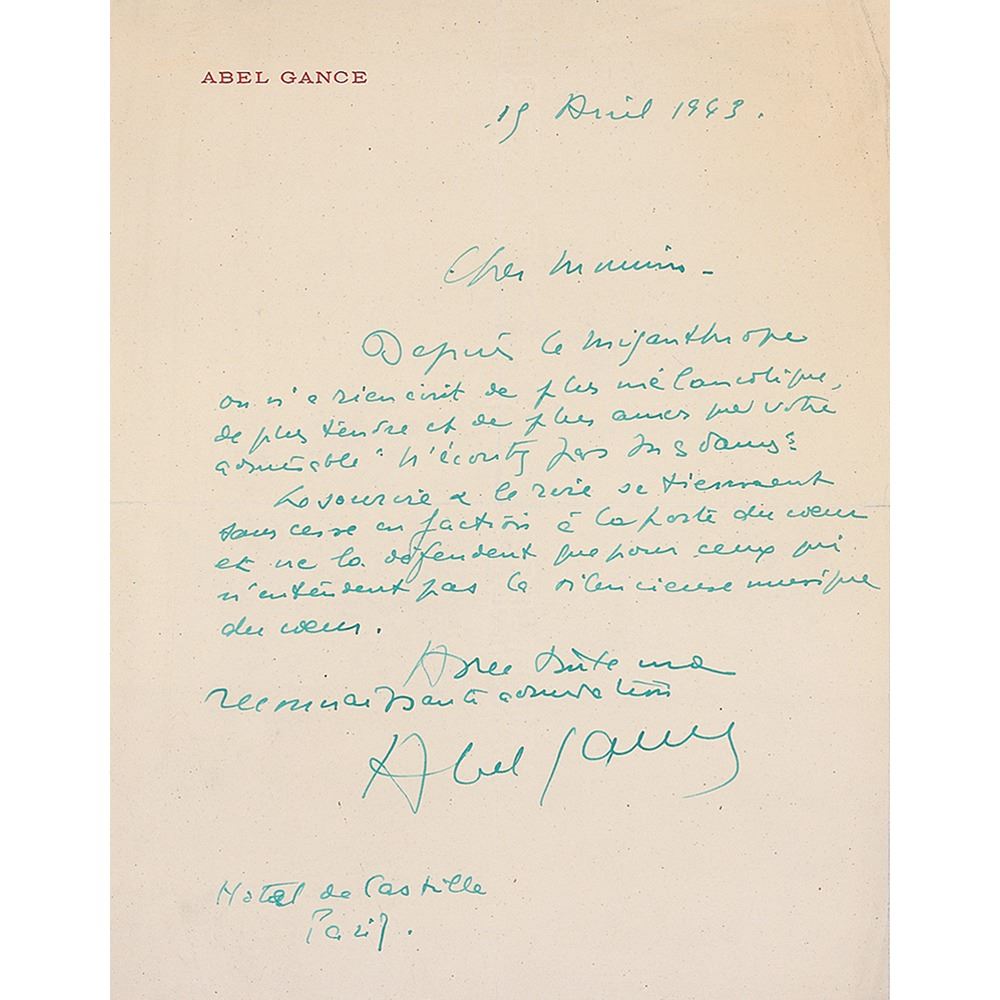 ABEL GANCE
19 Avril 1943.
Cher
Depuis le Misanthrope
on n'a rien écrit de plus mélancolique,
de plus tendre et de plus amer que votre
admirable "N'écoutez pas Mesdames"
Le sourire & le rire se tiennent
sans cesse en faction à la porte du cœur
et ne la défendent que pour ceux qui
n'entendent pas la silencieuse musique
du cœur.
Avec toute ma
reconnaissante admiration
Abel Gance
Hotel de Castille
Paris.